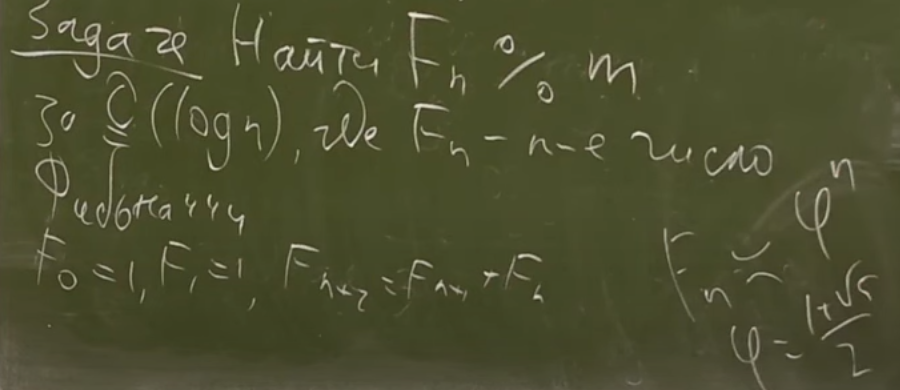 Задача Найти Fₙ % m
за O(log n), где Fₙ - n-е число
Фибоначчи
F₀ = 1, F₁ = 1, Fₙ₊₂ = Fₙ₊₁ + Fₙ
Fₙ ≍ φⁿ
φ = (1+√5)/2